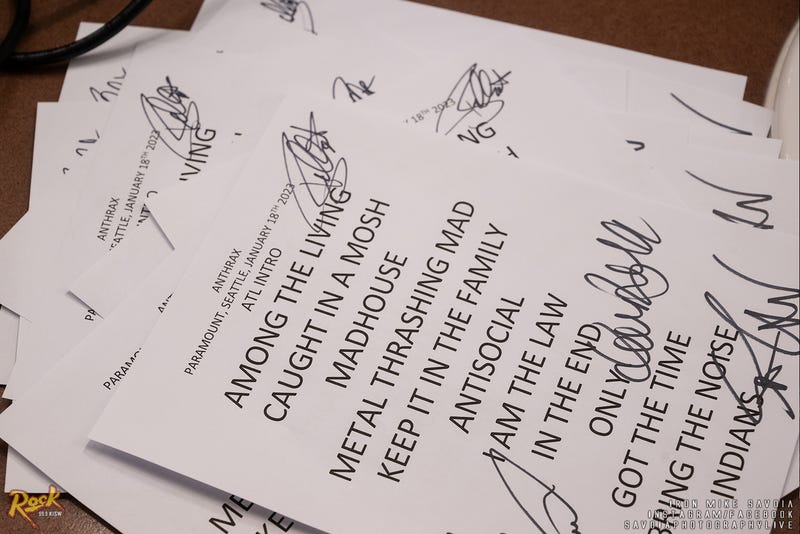 ANTHRAX
PARAMOUNT, SEATTLE, JANUARY 18TH 2023
ATL INTRO
AMONG THE LIVING
CAUGHT IN A MOSH
MADHOUSE
METAL THRASHING MAD
KEEP IT IN THE FAMILY
ANTISOCIAL
I AM THE LAW
IN THE END
ONLY
GOT THE TIME
BRING THE NOISE
INDIANS
ANTHRAX
SEATTLE, JANUARY 18TH 2023
IVING
18TH 2023
NG
PARAMO
ME
KE
Rock
99.9 KISW
IRON MIKE SAVOIA
INSTAGRAM/FACEBOOK
SAVOIAPHOTOGRAPHYLIVE